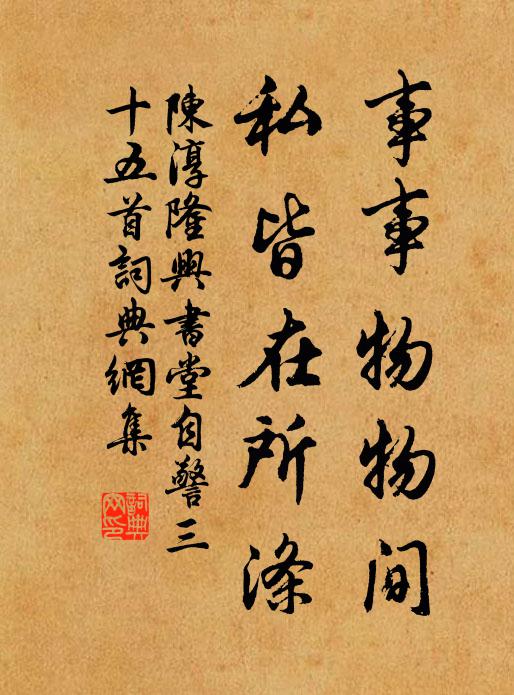 事事物物間
私皆在所滌
陳淳隆興書堂自警三
十五首詞典網集